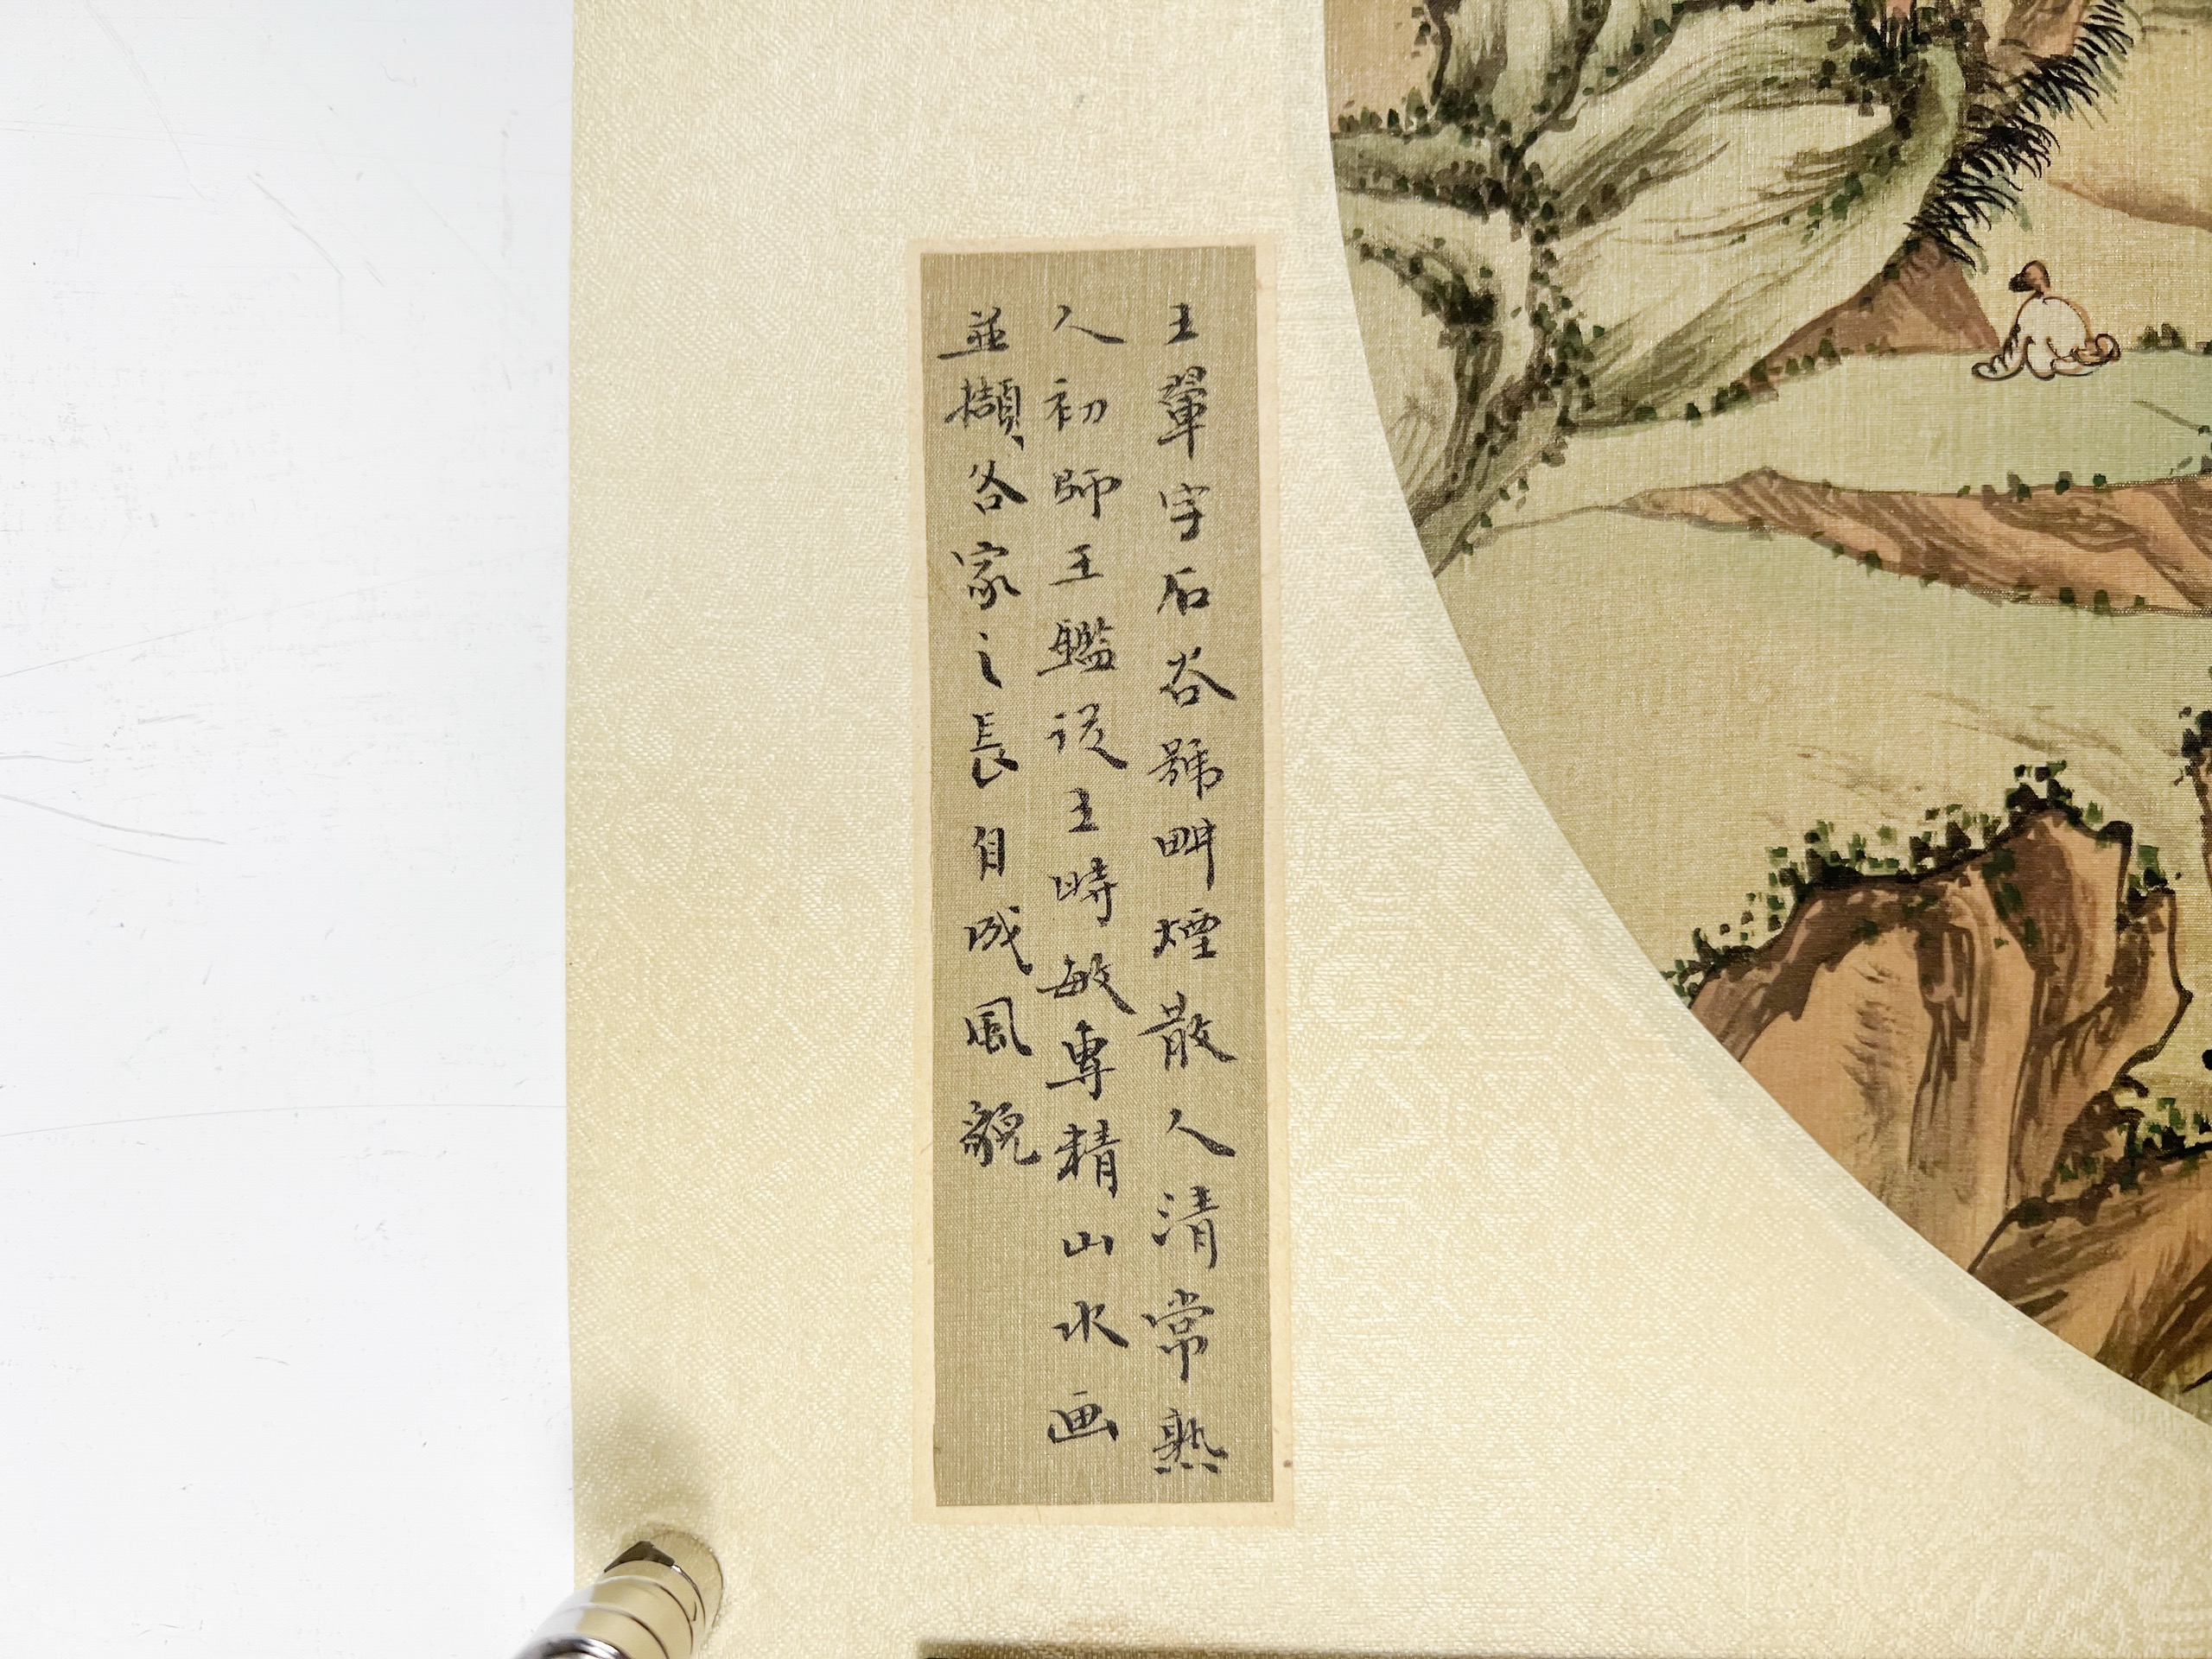 王翬字石谷號畊煙散人清常熟
人初師王鑑從王時敏專精山水画
並擷各家之長自成風貌